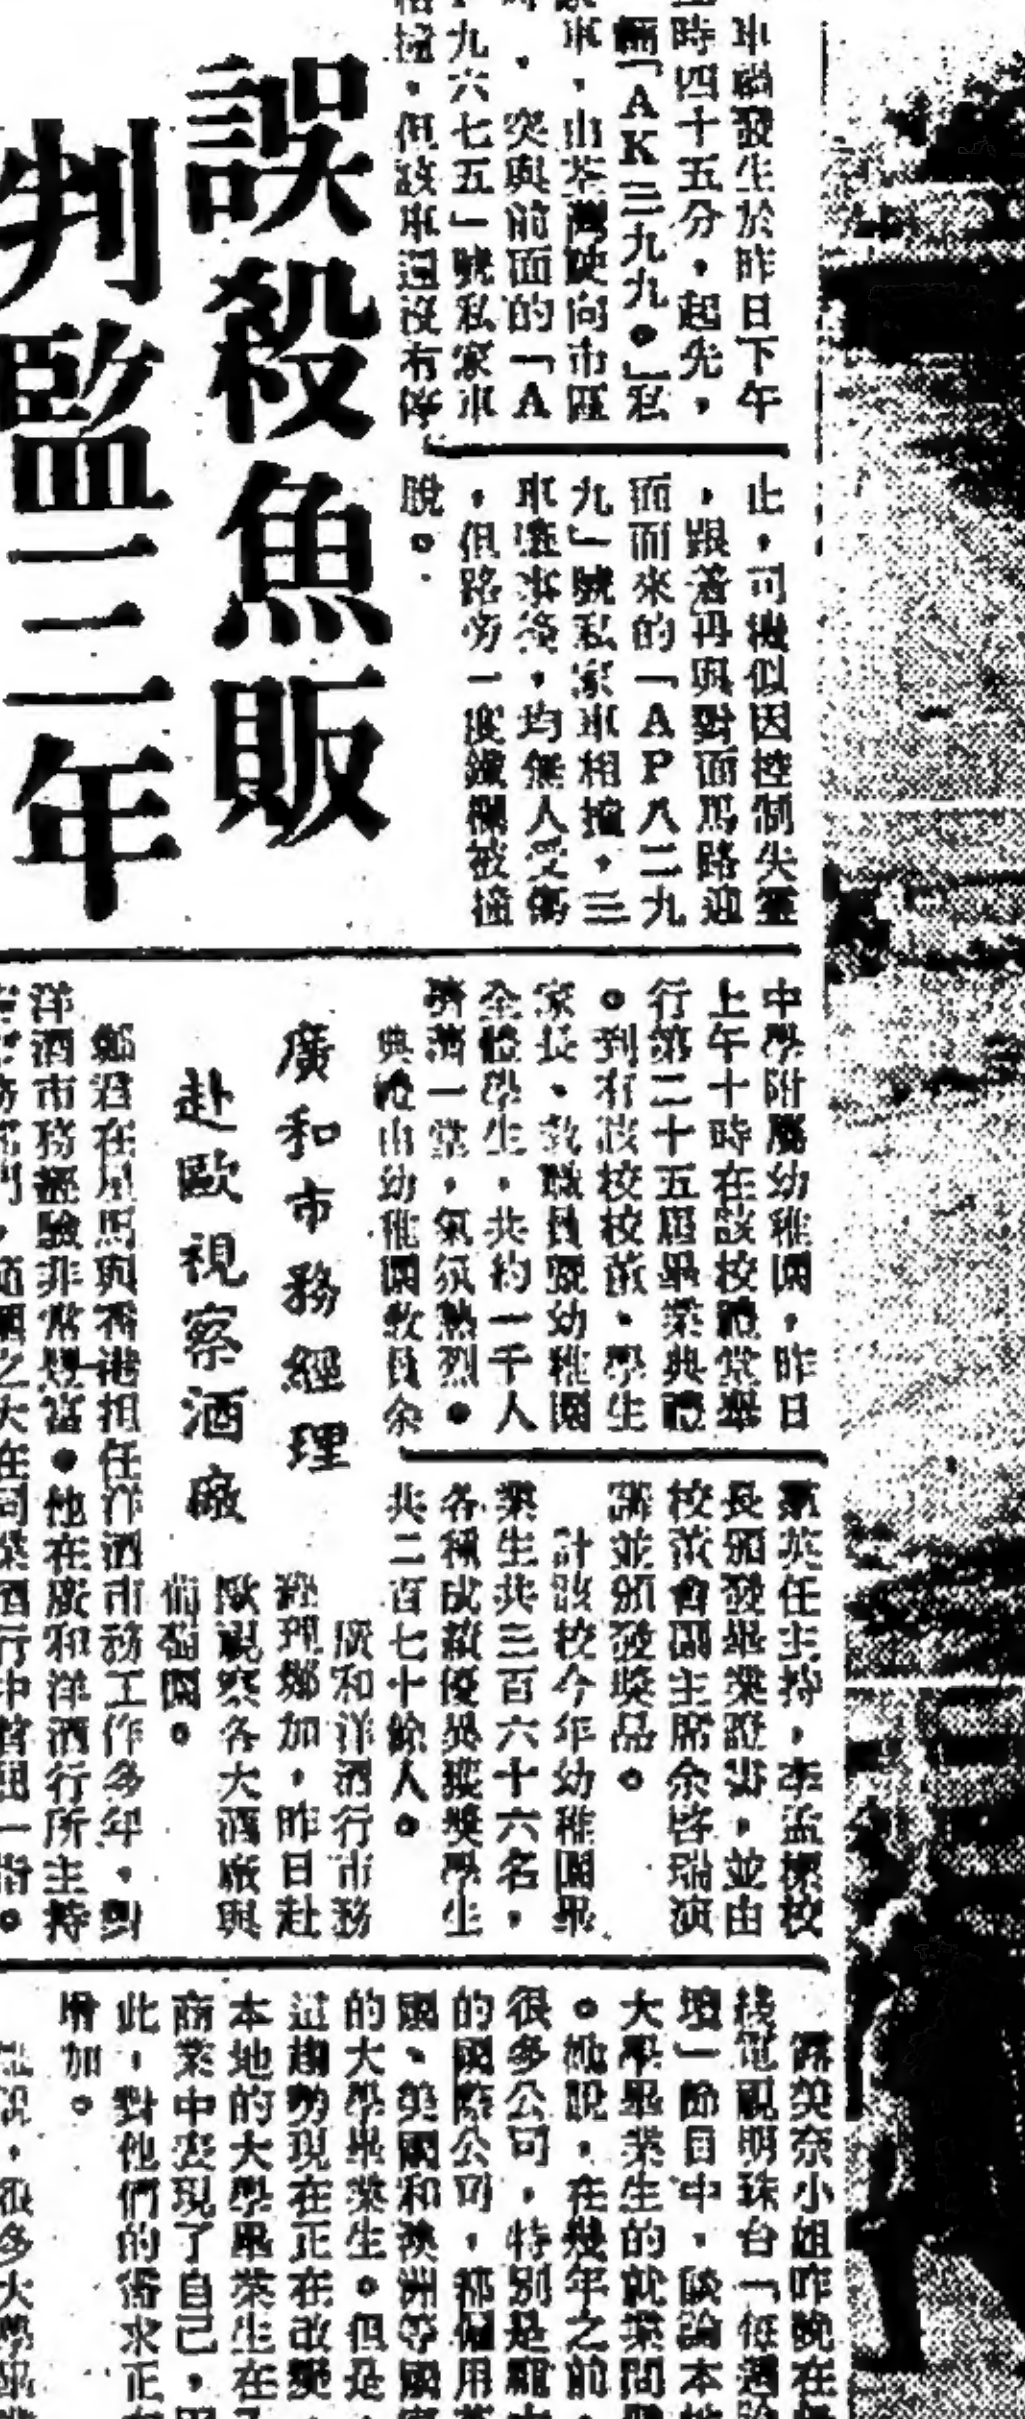 車禍發生於昨日下午
時四十五分，起先，
輛「AK三九九〇」私
車，由荃灣駛向市區
，突與前面的「A
九六七五」號私家車
撞，但該車還沒有停
止，司機似因控制失靈
，跟着再與對面馬路迎
面而來的「AP八二九
九」號私家車相撞，三
車遇事後，均無人受傷
，但路旁一度鐵欄被撞
脫。
誤殺魚販
判監三年
中學附屬幼稚園，昨日
上午十時在該校禮堂舉
行第二十五屆畢業典禮
。到有該校校董、學生
家長、教職員暨幼稚園
全體學生，共約一千人
濟濟一堂，氣氛熱烈。
典禮由幼稚園教員余
英任主持，李孟標校
長頒發畢業證書，並由
校董會主席余啓瑞演
講並頒發獎品。
計該校今年幼稚園畢
業生共三百六十六名，
各種成績優異獲獎學生
共二百七十餘人。
廣和市務經理
赴歐視察酒廠
廣和洋酒行市務
經理鄭加，昨日赴
歐視察各大酒廠與
葡園。
鄭君在星馬與香港担任洋酒市務工作多年，對
洋酒市務經驗非常豐富。他在廣和洋酒行所主持
之大在同業酒行中首屈一指。
笑奈小姐昨晚在
綫電視明珠台「每週論
壇」節目中，談論本
大學畢業生的就業問
。她說，在幾年之前
很多公司，特別是
的國際公司，都僱用
國、美國和澳洲等國
的大學畢業生。但是
這趨勢現在正在改變，
本地的大學畢業生在
商業中表現了自己，
此，對他們的需求正
增加。
說，很多大學